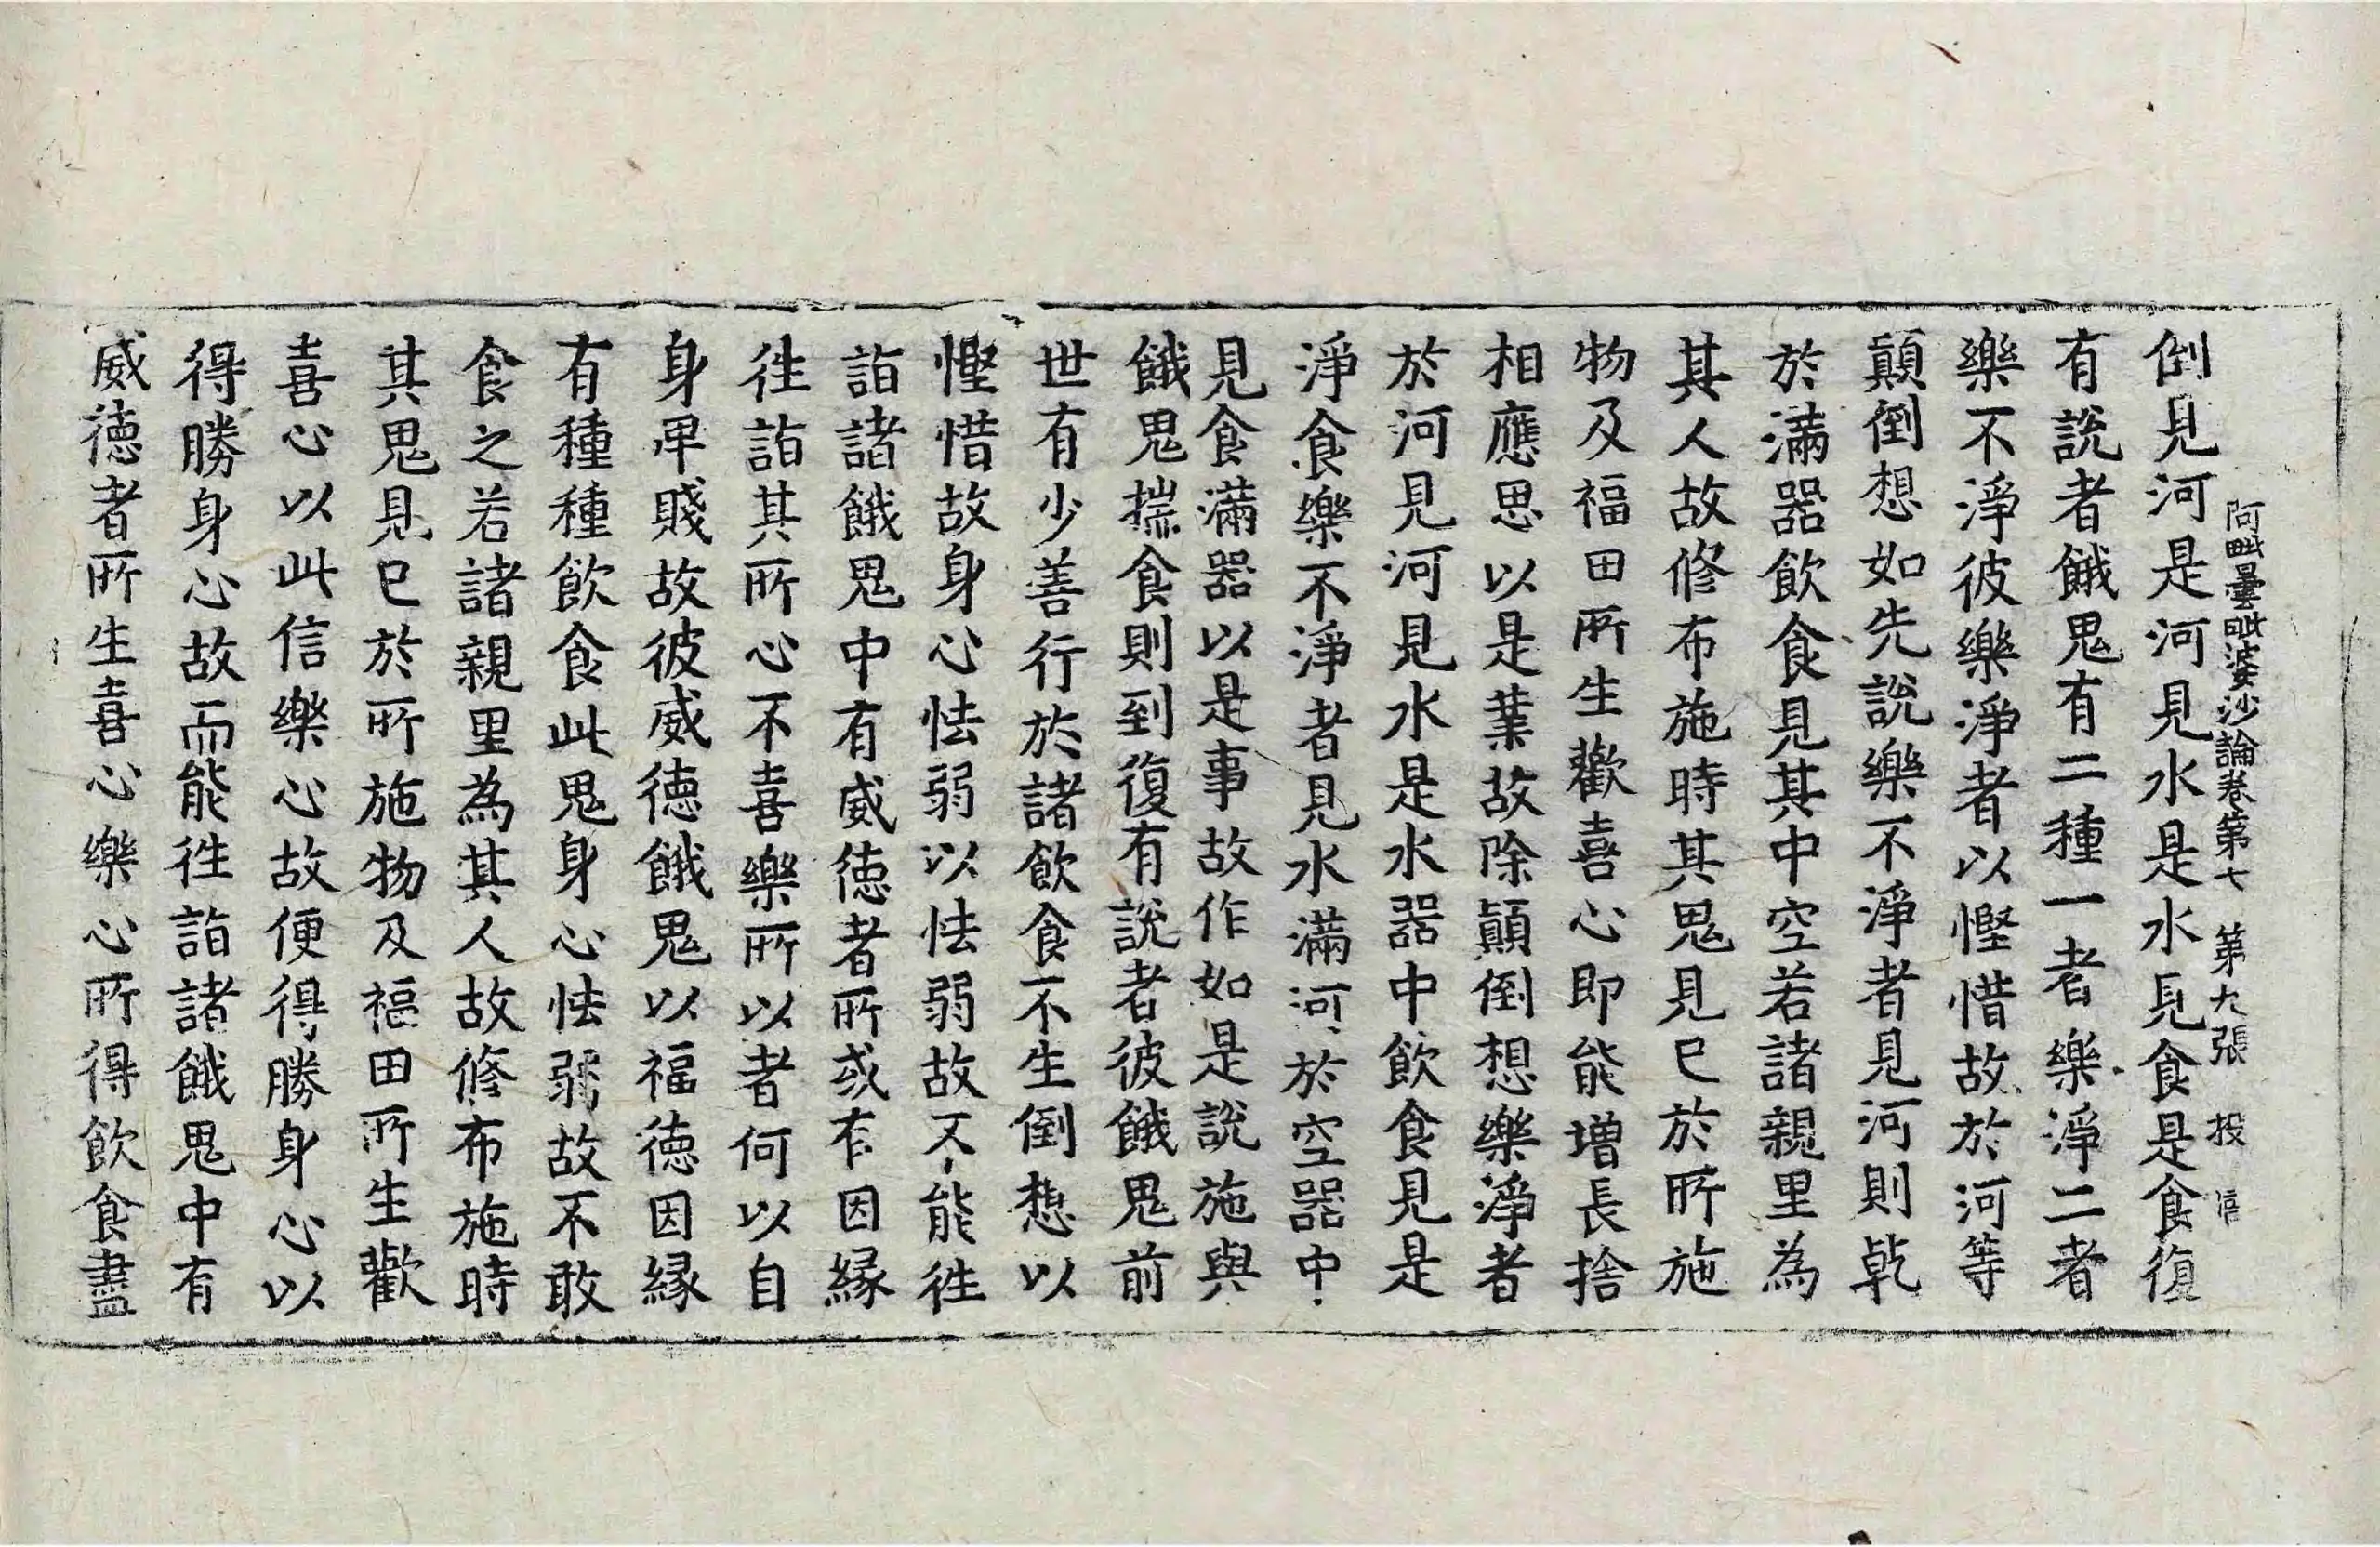 阿毗曇毗婆沙論卷第七　第九張　投
倒見河是河見水是水見食是食復
有說者餓鬼有二種一者樂淨二者
樂不淨彼樂淨者以慳惜故於河等
顛倒想如先說樂不淨者見河則乾
於滿器飲食見其中空若諸親里為
其人故修布施時其鬼見已於所施
物及福田所生歡喜心即能增長捨
相應思以是業故除顛倒想樂淨者
於河見河見水是水器中飲食見是
淨食樂不淨者見水滿河於空器中
見食滿器以是事故作如是說施與
餓鬼揣食則到復有說者彼餓鬼前
世有少善行於諸飲食不生倒想以
慳惜故身心怯弱以怯弱故不能往
詣諸餓鬼中有威德者所或有因緣
往詣其所心不喜樂所以者何以自
身卑賤故彼威德餓鬼以福德因緣
有種種飲食此鬼身心怯弱故不敢
食之若諸親里為其人故修布施時
其鬼見已於所施物及福田所生歡
喜心以此信樂心故便得勝身心以
得勝身心故而能往詣諸餓鬼中有
威德者所生喜心樂心所得飲食盡